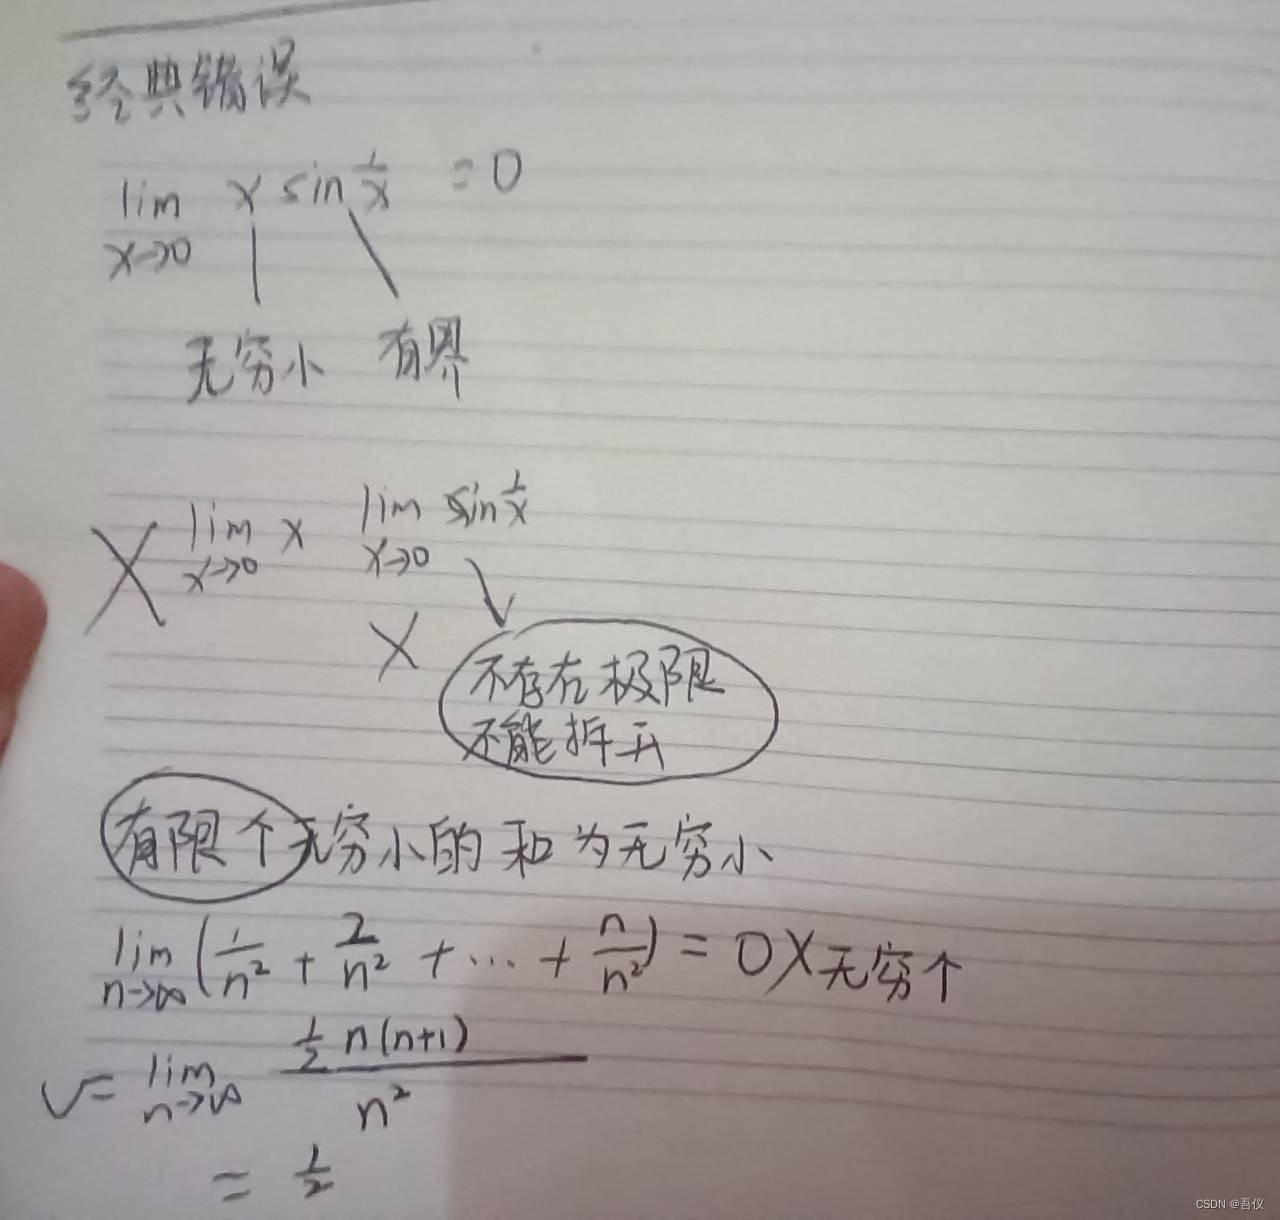 经典错误
lim x sin 1/x = 0
x→0
无穷小 有界
X lim x lim sin 1/x
x→0 x→0
X
不存在极限
不能拆开
有限个无穷小的和为无穷小
lim (1/n² + 2/n² + ... + n/n²) = 0 X 无穷个
n→∞
√= lim ½n(n+1)/n²
n→∞
= ½
CSDN @吾仪